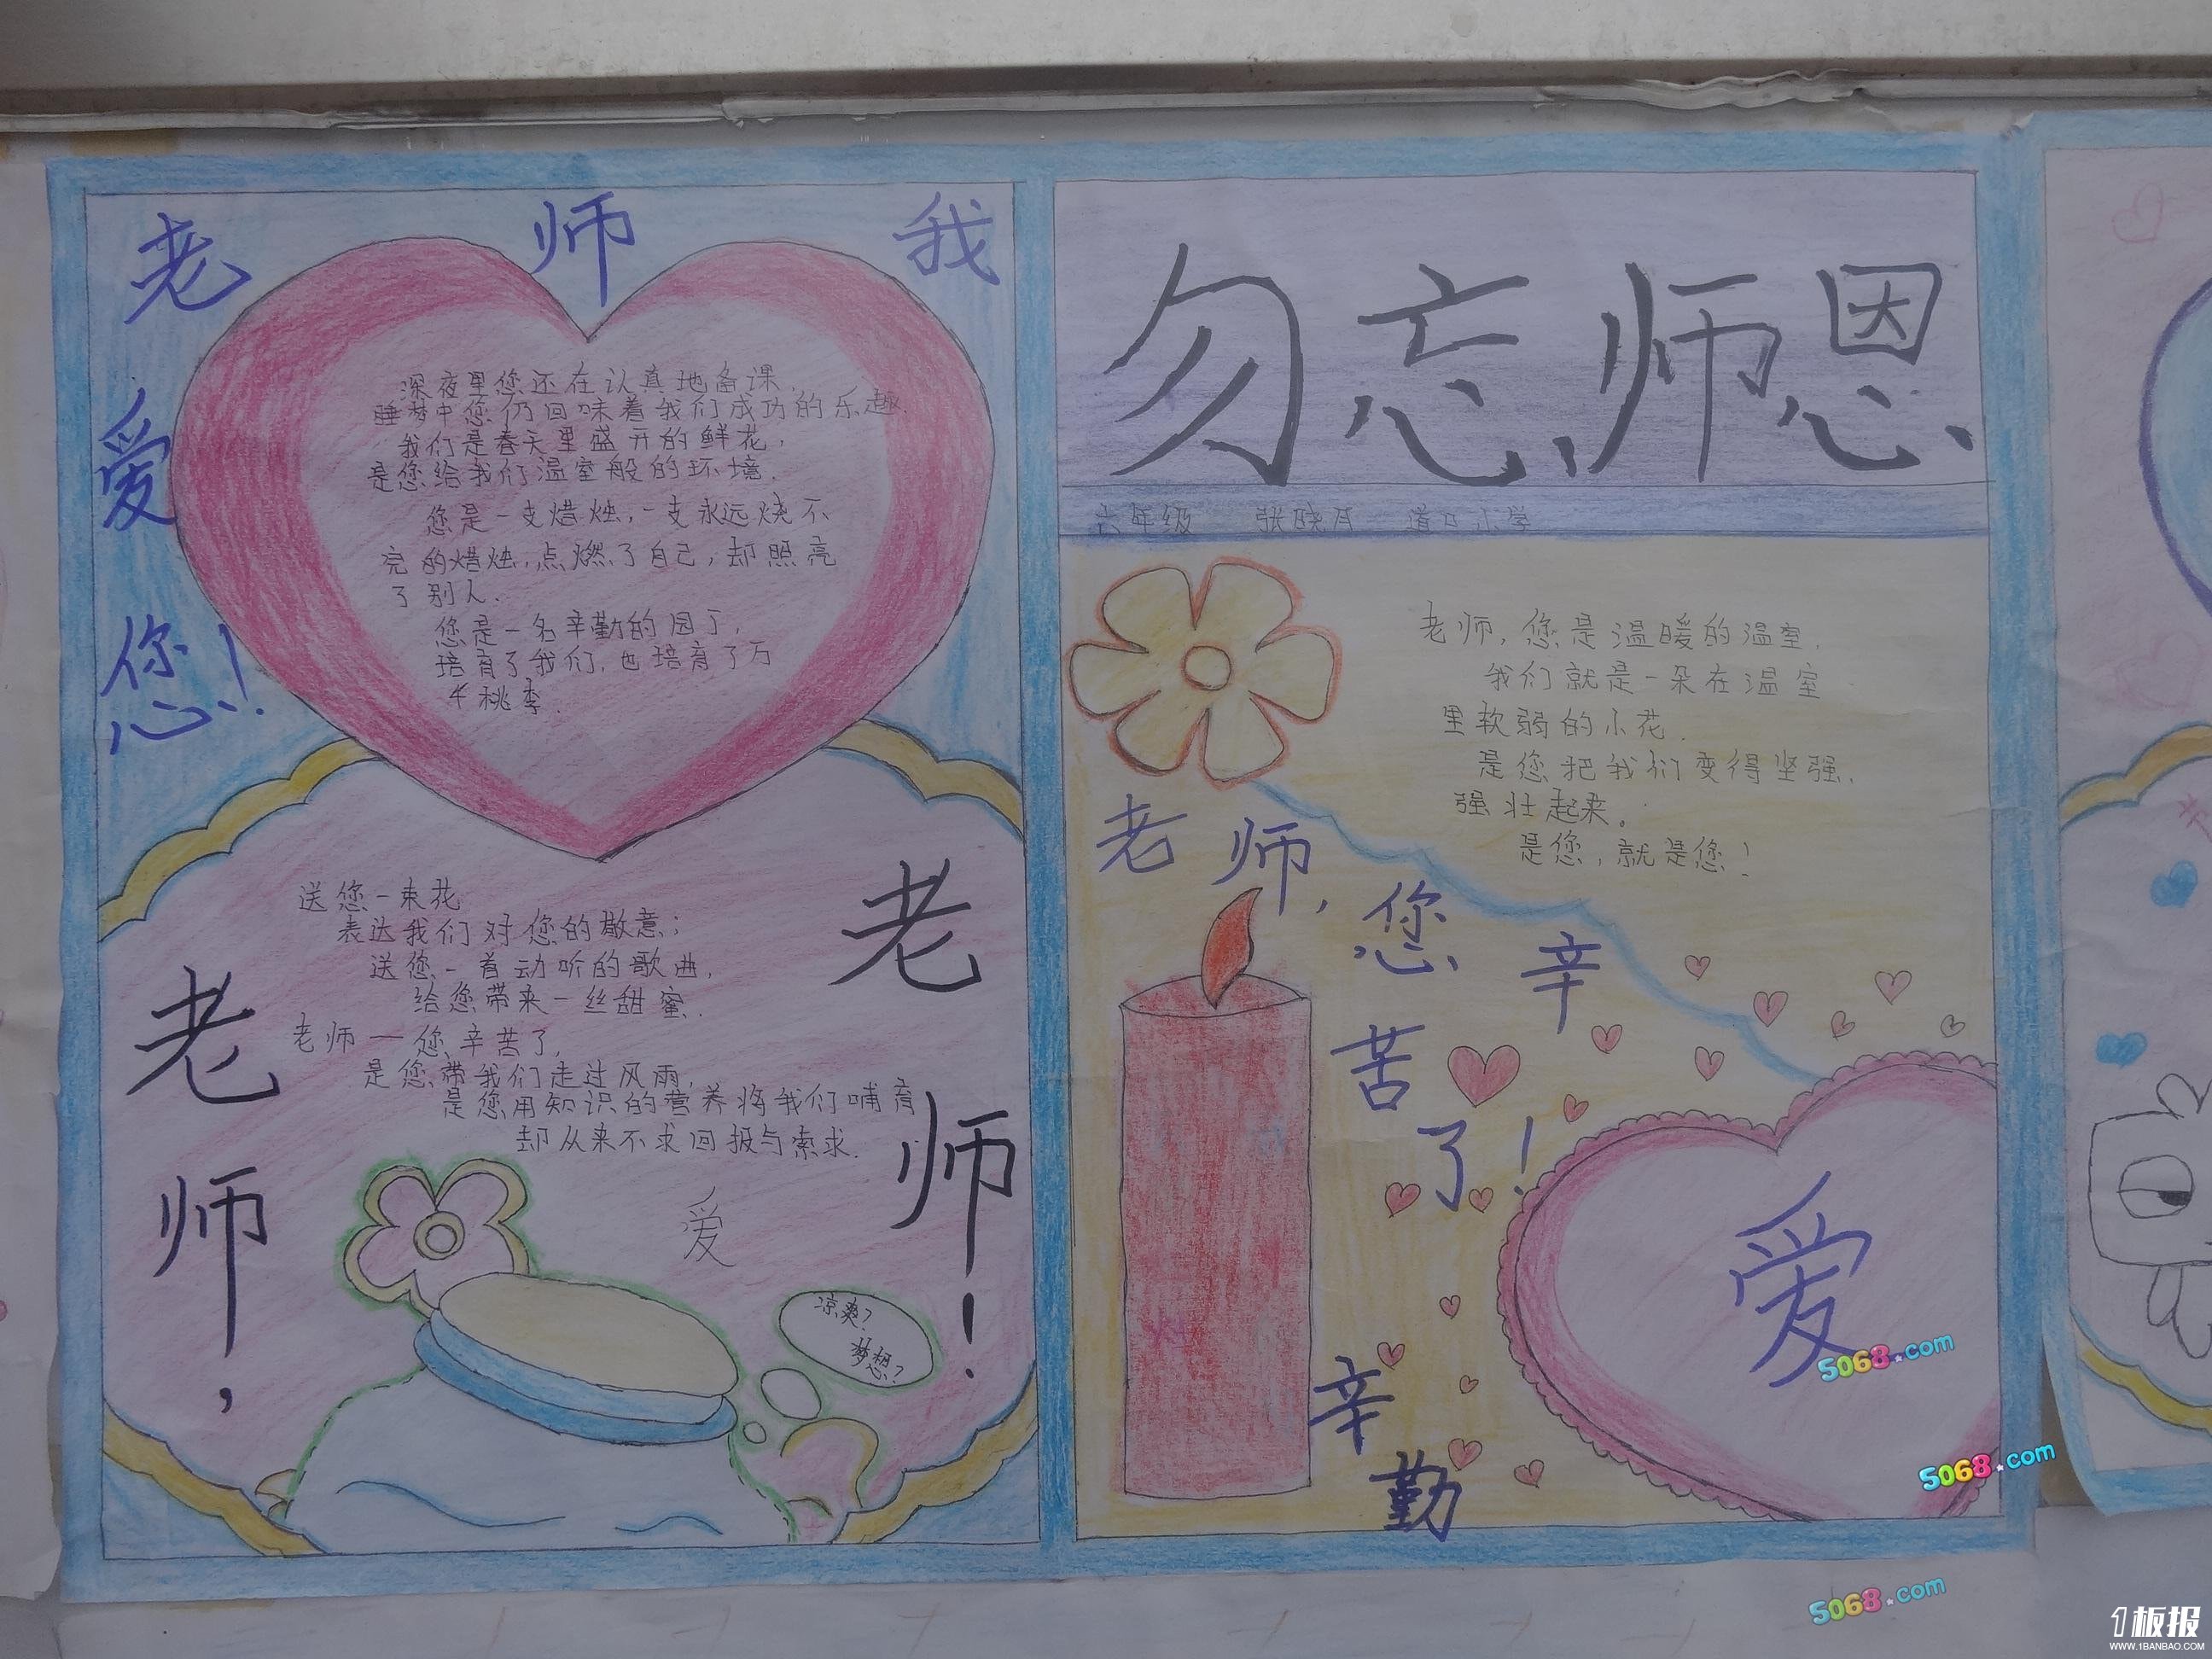 老师我爱您！
深夜里您还在认真地备课，
睡梦中您仍回味着我们成功的乐趣.
我们是春天里盛开的鲜花，
是您给我们温室般的环境.
您是一支腊烛，一支永远烧不
完的腊烛，点燃了自己，却照亮
了别人.
您是一名辛勤的园丁，
培育了我们，也培育了万
千桃李.
送您一束花
表达我们对您的敬意；
送您一首动听的歌曲，
给您带来一丝甜蜜.
老师一您辛苦了，
是您带我们走过风雨，
是您用知识的营养将我们哺育
却从来不求回报与索求.
老师，
老师！
爱
凉爽？
梦想？
勿忘师恩
六年级 张晓月 道口小学
老师，您是温暖的温室，
我们就是一朵在温室
里软弱的小花.
是您把我们变得坚强，
强壮起来。
是您，就是您！
老师，您辛苦了！
爱
辛勤
5068.com
5068.com
5068.com
1板报
WWW.1BANBAO.COM